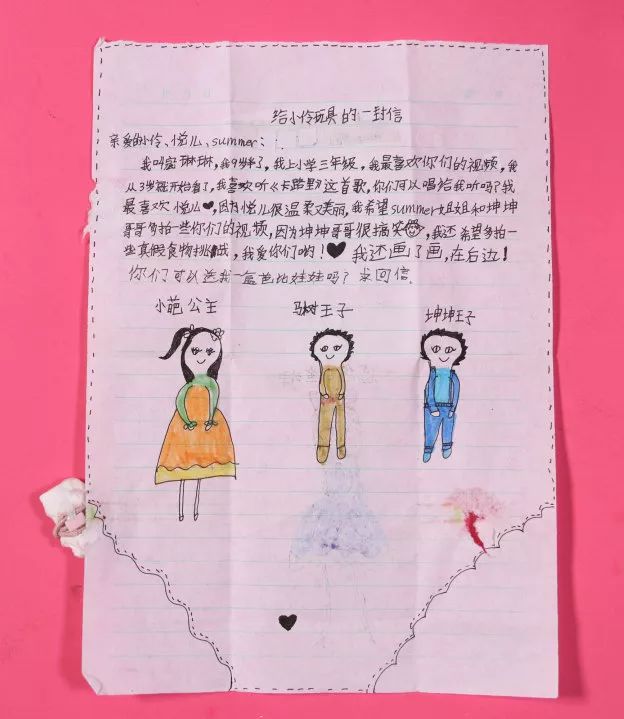 给小伶玩具的一封信
亲爱的小伶、悦儿、summer：
我叫窦琳琳,我9岁半了,我上小学三年级,我最喜欢你们的视频,我
从3岁就开始看了,我喜欢听《卡路里》这首歌,你们可以唱给我听吗?我
最喜欢悦儿♥,因为悦儿很温柔又美丽,我希望summer姐姐和坤坤
哥哥多拍一些你们的视频,因为坤坤哥哥很搞笑,我还希望多拍一
些真假食物挑战,我爱你们哟!♥我还画了画,在后边!
你们可以送我一盒芭比娃娃吗?求回信
小葩公主
马树王子
坤坤王子